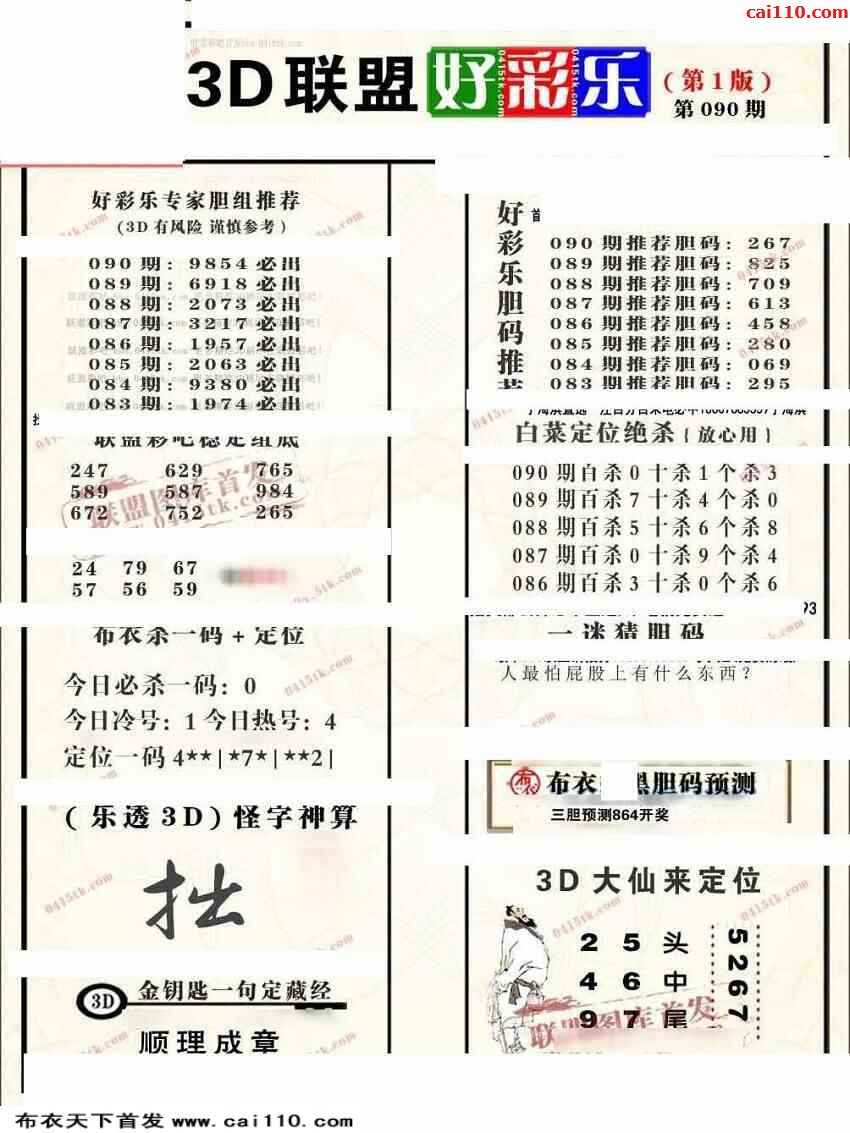 cai110.com
3D联盟好彩乐
(第1版)
第090期
好彩乐专家胆组推荐
(3D有风险 谨慎参考)
090期: 9854必出
089期: 6918必出
088期: 2073必出
087期: 3217必出
086期: 1957必出
085期: 2063必出
084期: 9380必出
083期: 1974必出
联盟彩吧稳定组底
247 629 765
589 587 984
672 752 265
24 79 67
57 56 59
布衣杀一码+定位
今日必杀一码: 0
今日冷号: 1 今日热号: 4
定位一码 4**|*7*|**2|
(乐透3D)怪字神算
拙
3D 金钥匙一句定藏经
顺理成章
好彩乐胆码推荐
首
090期推荐胆码: 267
089期推荐胆码: 825
088期推荐胆码: 709
087期推荐胆码: 613
086期推荐胆码: 458
085期推荐胆码: 280
084期推荐胆码: 069
083期推荐胆码: 295
白菜定位绝杀{放心用}
090期白杀0十杀1个杀3
089期百杀7十杀4个杀0
088期百杀5十杀6个杀8
087期百杀0十杀9个杀4
086期百杀3十杀0个杀6
93
一迷猜胆码
人最怕屁股上有什么东西?
布衣 黑胆码预测
三胆预测864开奖
3D大仙来定位
2 5 头
4 6 中
9 7 尾
5267
联盟图库首发
0415tk.com
布衣天下首发 www.cai110.com